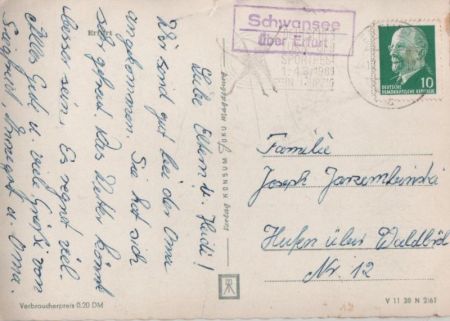 Erfurt
Liebe Eltern u. Heidi!
Wir sind gut bei der Oma
angekommen. Sie hat sich
sehr gefreut. Das Wetter könnte
besser sein. Es regnet viel.
Alles Gute u. viele Grüße von
Siegfried, Irmgart u. Oma.
Verbraucherpreis 0.20 DM
Schwansee
über Erfurt
DEUTSCHE
DEMOKRATISCHE REPUBLIK
10
Familie
Joseph
Hufen über Waldbröl
Nr. 12
V 11 28 N 2161